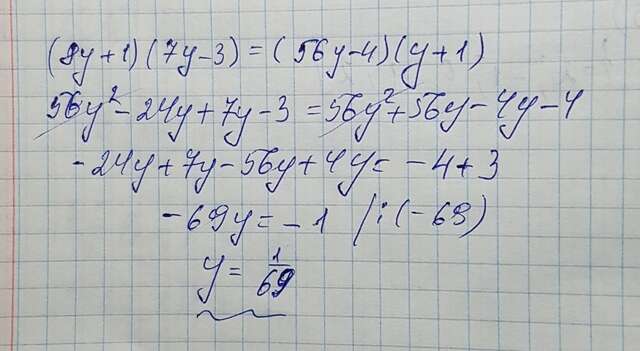 (8y+1)(7y-3)=(56y-4)(y+1)
56y²-24y+7y-3=56y²+56y-4y-4
-24y+7y-56y+4y=-4+3
-69y=-1 /:(-69)
y=1/69